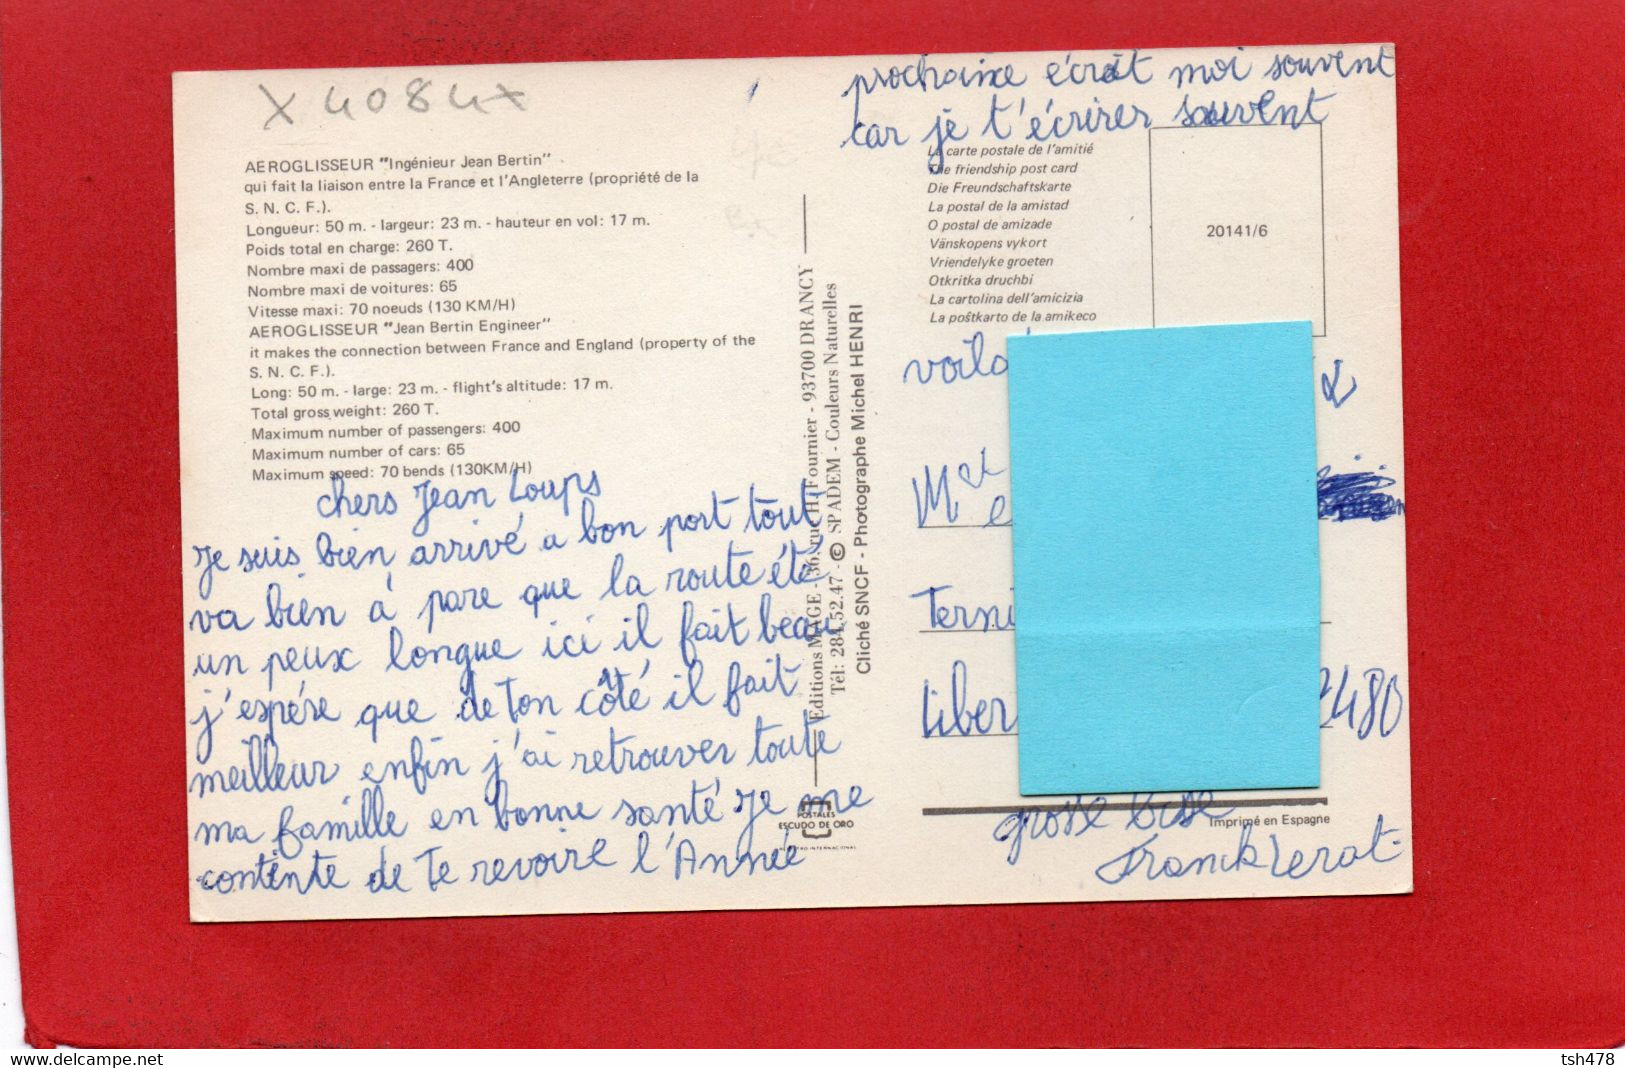 X 4084 x
AEROGLISSEUR "Ingénieur Jean Bertin"
qui fait la liaison entre la France et l'Angleterre (propriété de la
S. N. C. F.).
Longueur: 50 m. - largeur: 23 m. - hauteur en vol: 17 m.
Poids total en charge: 260 T.
Nombre maxi de passagers: 400
Nombre maxi de voitures: 65
Vitesse maxi: 70 noeuds (130 KM/H)
AEROGLISSEUR "Jean Bertin Engineer"
it makes the connection between France and England (property of the
S. N. C. F.).
Long: 50 m. - large: 23 m. - flight's altitude: 17 m.
Total gross weight: 260 T.
Maximum number of passengers: 400
Maximum number of cars: 65
Maximum speed: 70 bends (130KM/H)
chers Jean Loups
Je suis bien arrivé a bon port tout
va bien à pare que la route été
un peux longue ici il fait beau
j'espére que de ton côté il fait
meilleur enfin j'ai retrouver toute
ma famille en bonne santé Je me
contente de te revoire l'Année
prochaine écrét moi souvent
car je t'écrirer souvent
Editions MAGE - 36, rue H. Fournier - 93700 DRANCY
Tél: 284.52.47 - © SPADEM - Couleurs Naturelles
Cliché SNCF - Photographe Michel HENRI
POSTALES
ESCUDO DE ORO
La carte postale de l'amitié
The friendship post card
Die Freundschaftskarte
La postal de la amistad
O postal de amizade
Vänskopens vykort
Vriendelyke groeten
Otkritka druchbi
La cartolina dell'amicizia
La poŝtkarto de la amikeco
20141/6
voila
M et
Terni
Liber 2480
grosse bise
Imprimé en Espagne
Franck Lerat
www.delcampe.net
tsh478